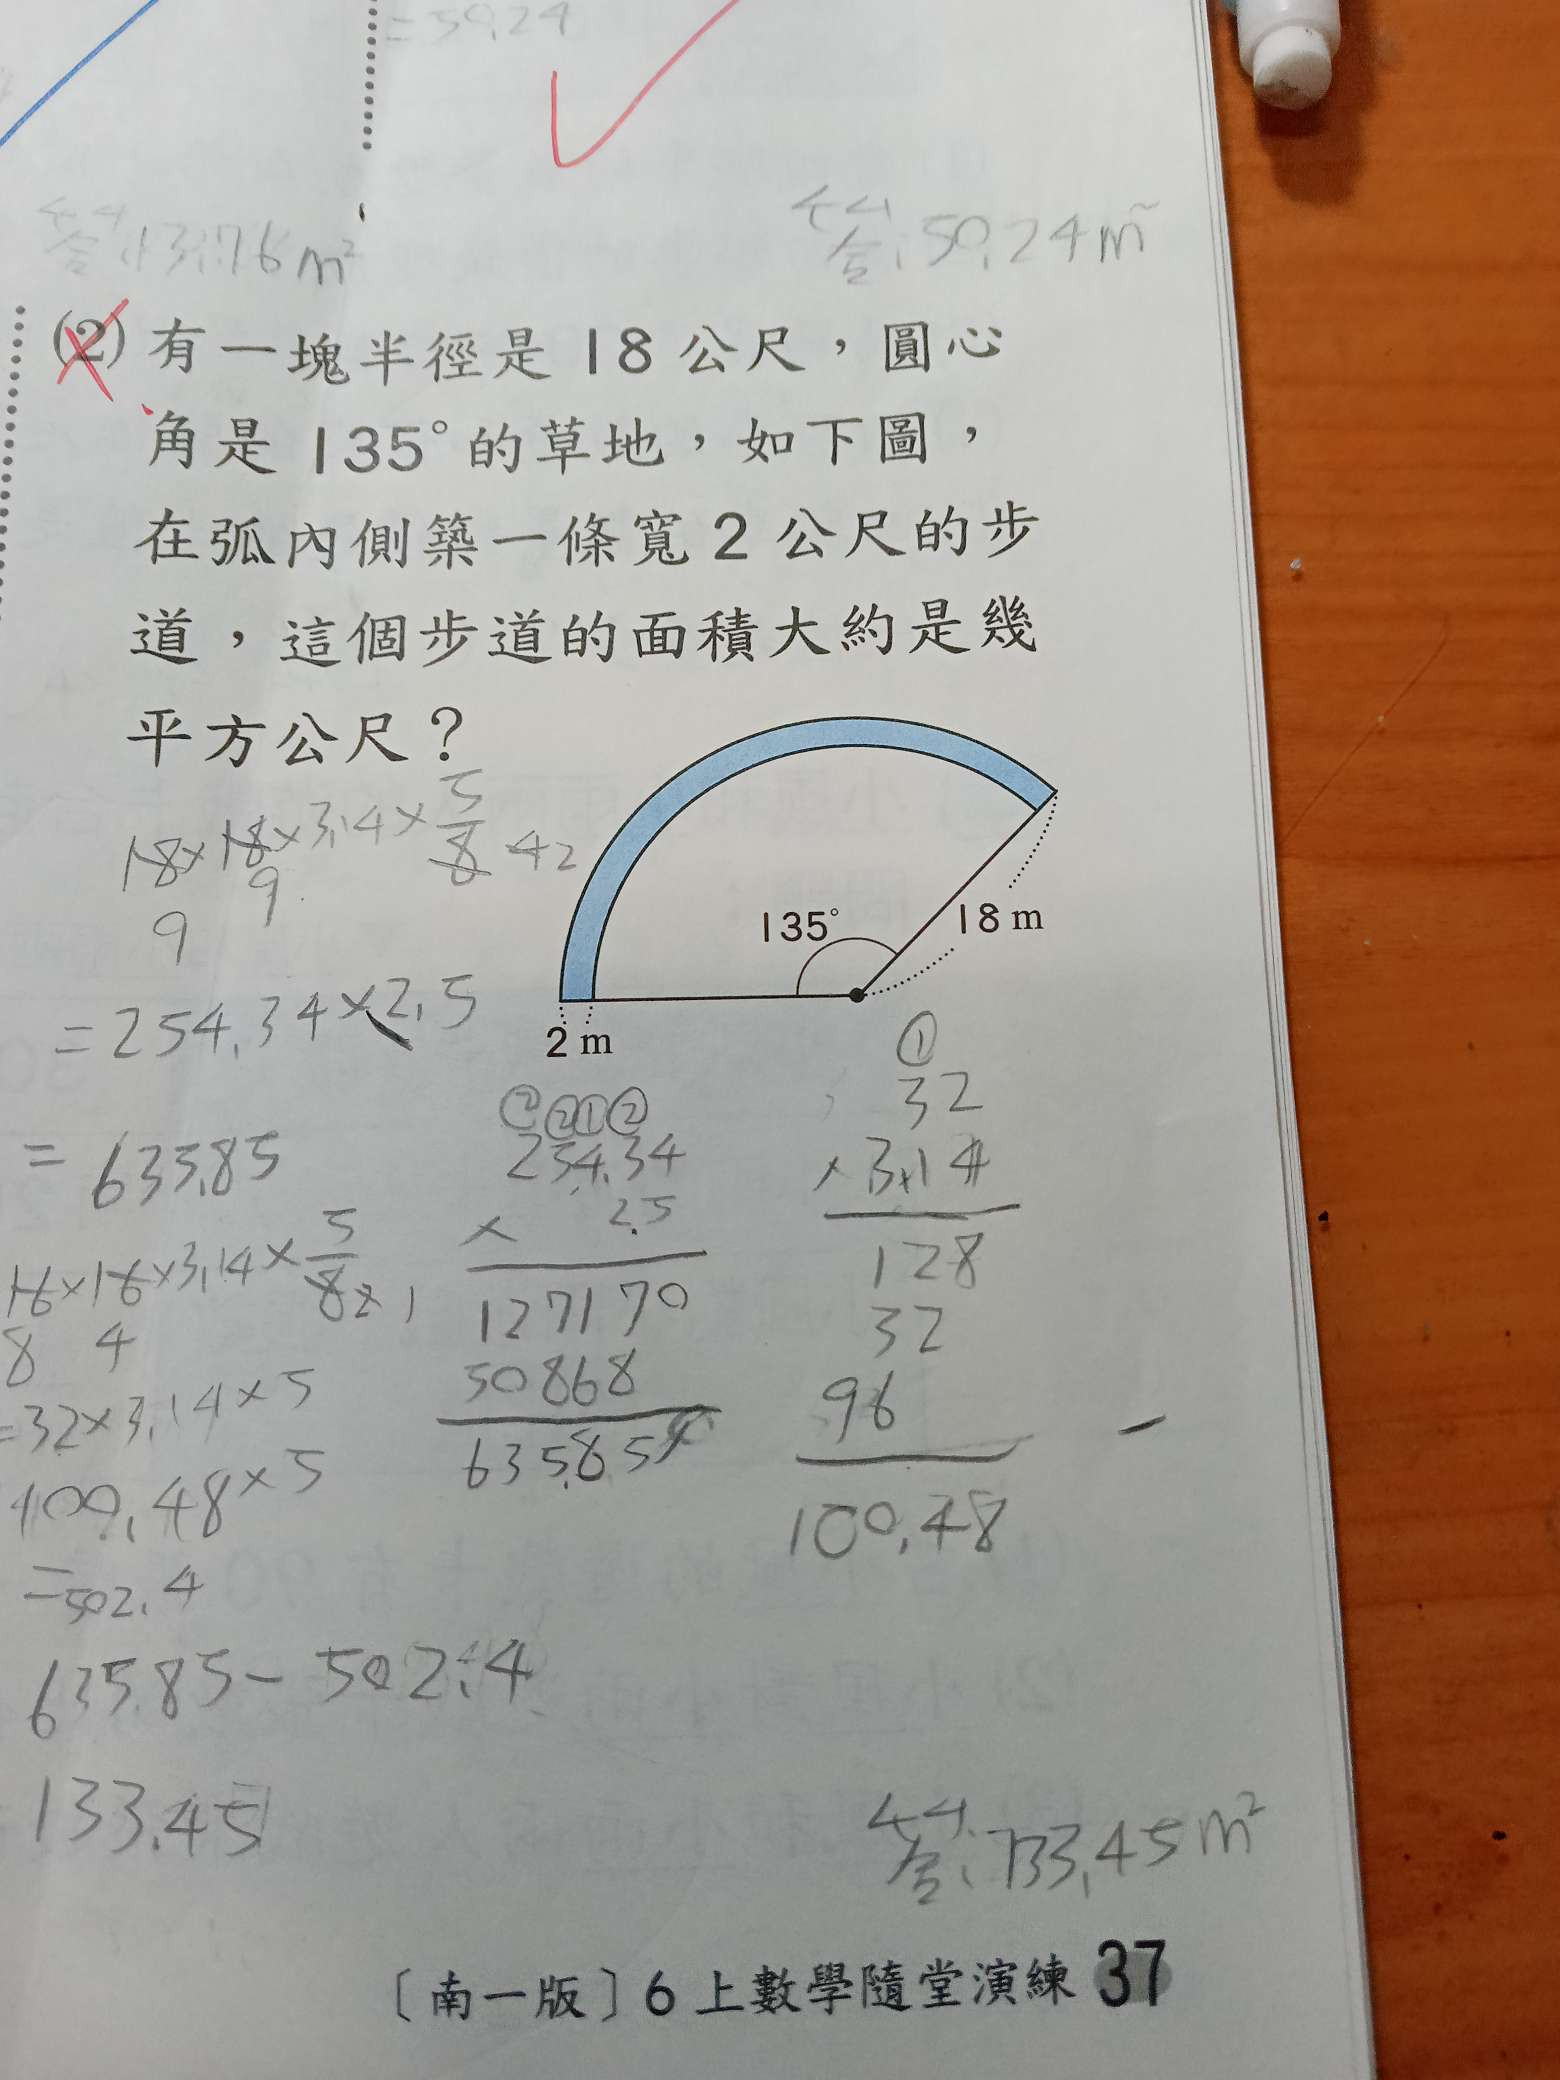 =50.24
答:13.76m²
答:50.24m²
(2) 有一塊半徑是18公尺，圓心
角是135°的草地，如下圖，
在弧內側築一條寬2公尺的步
道，這個步道的面積大約是幾
平方公尺？
18×18×3.14×5/8 42
9 9
135°
18 m
2 m
=254.34×2.5
=635.85
②②①②
254.34
× 2.5
127170
50868
635.85
①
32
×3.14
128
32
96
100.48
16×16×3.14×5/8 2 1
8 4
=32×3.14×5
100.48×5
=502.4
635.85-502.4
133.45
答:133.45m²
〔南一版〕6上數學隨堂演練 37